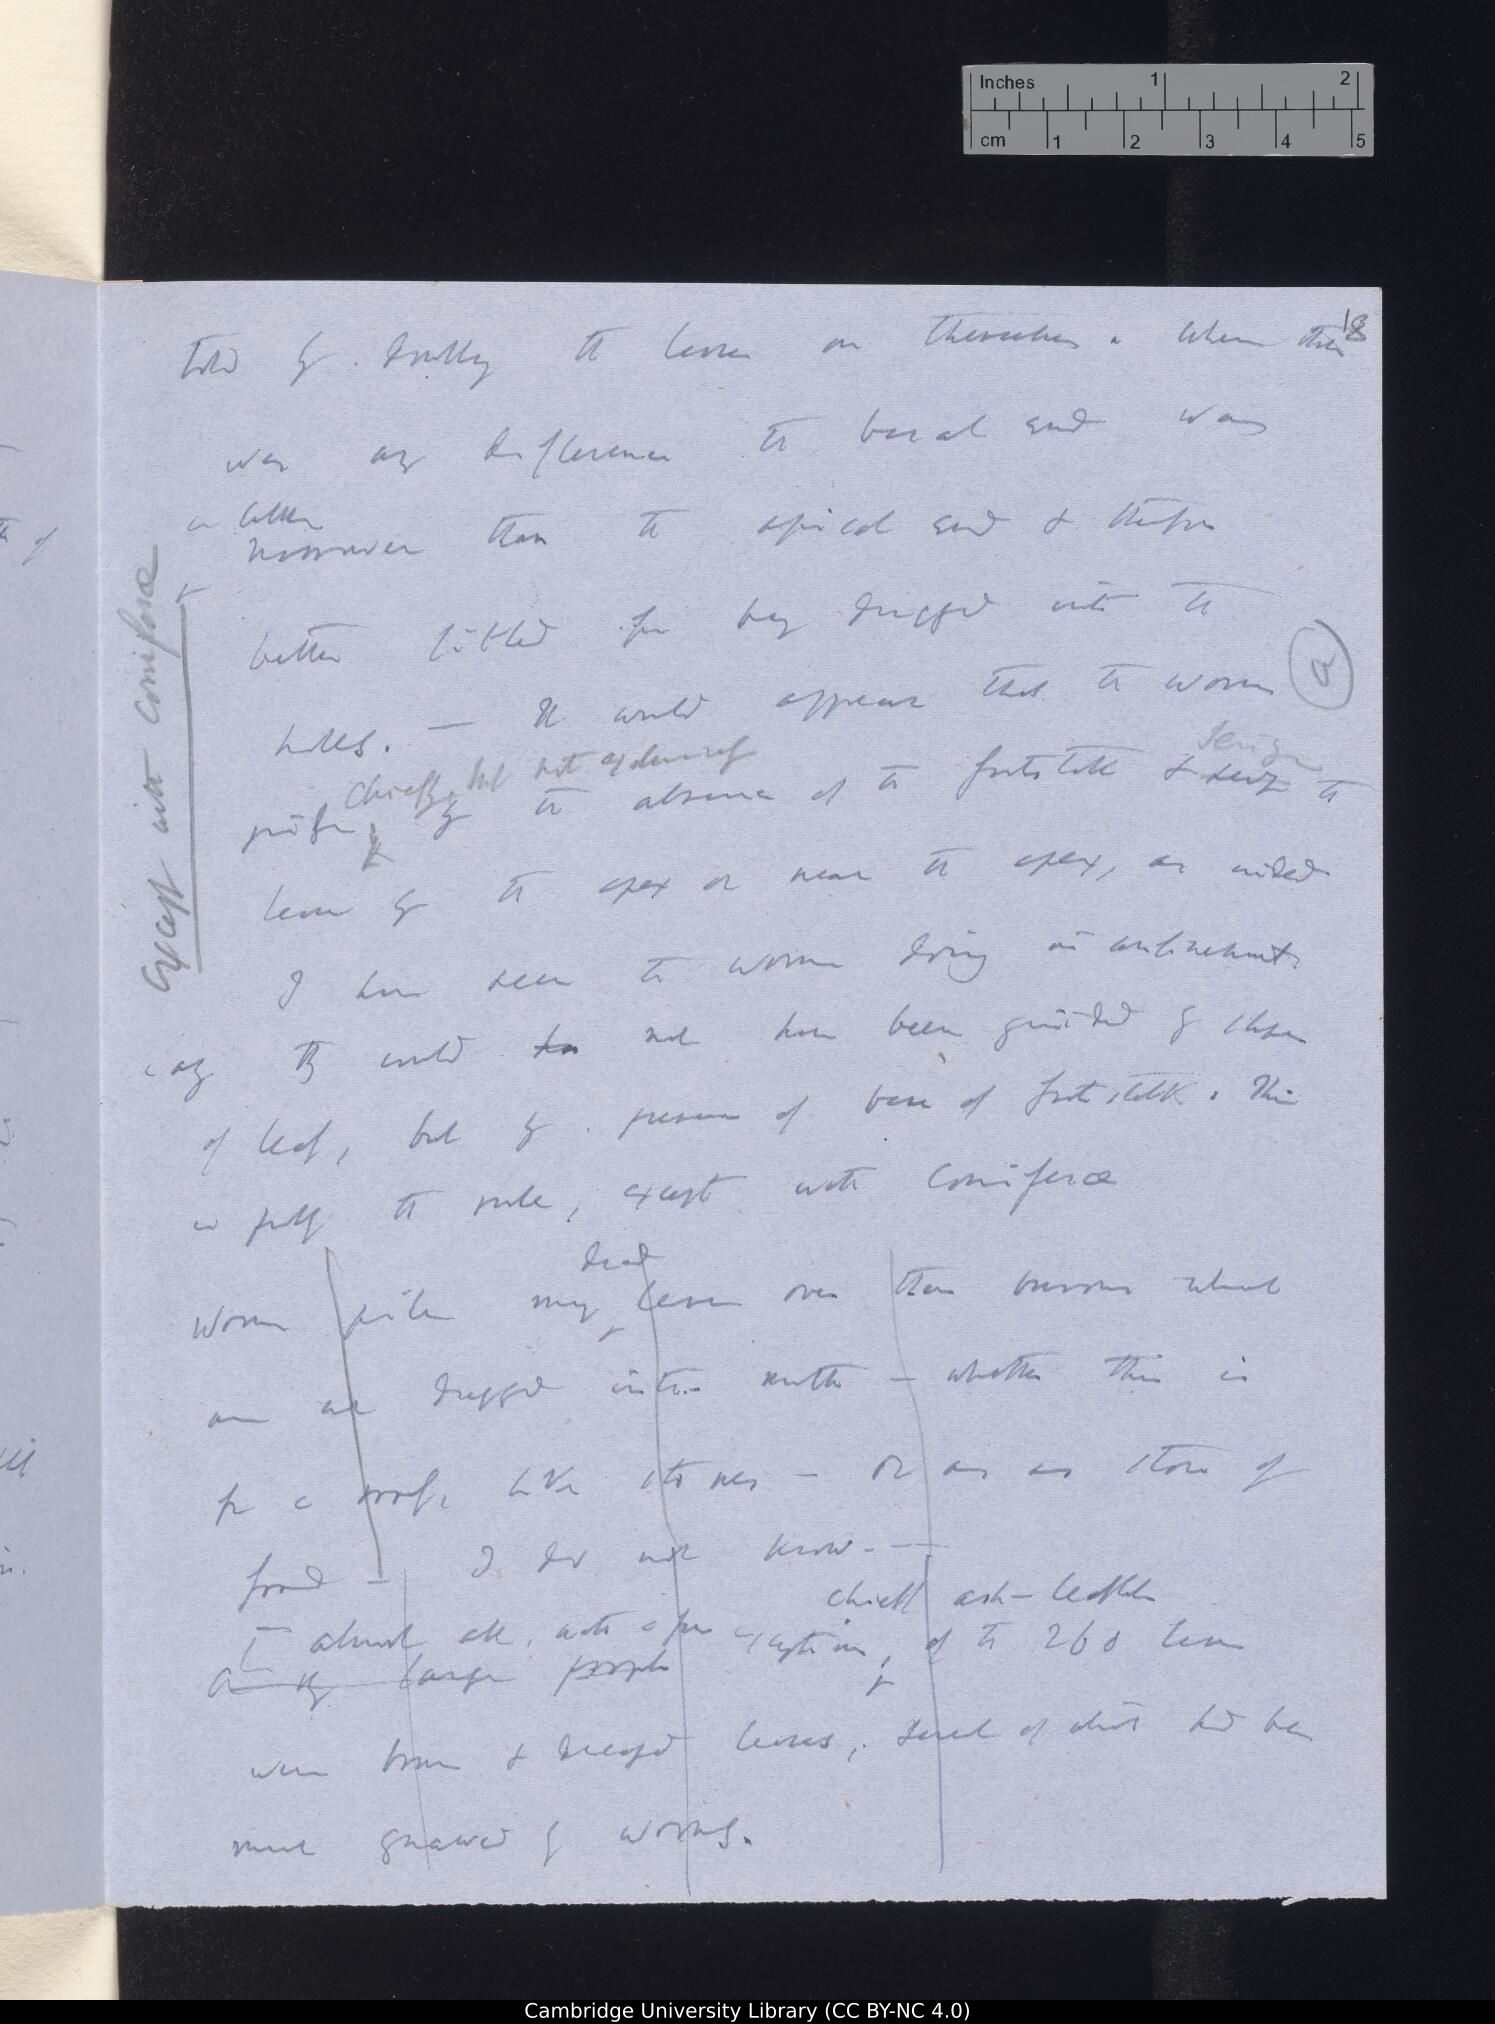 Inches 1 2
cm 1 2 3 4 5
18
told by doubling the leaves on themselves. When there
was any difference the basal end was
a little
narrower than the apical end & therefore
better fitted for being dragged into the
holes. — It would appear that the worms (a)
chiefly, but not exclusively
judge by the absence of the footstalk & seizing the
seizing
leaves by the apex or near the apex, as indeed
I have seen the worms doing in confinement.
any they could not have been guided by shape
of leaf, but by presence of base of footstalk. This
is fully the rule, except with Coniferæ
except with Coniferæ
dead
Worms pile many leaves over their burrows which
are not dragged into mouth — whether this is
for a roof, like stones — or as a store of
food — I do not know. —
chiefly ash-leaflets
almost all, with a few exceptions, of the 260 leaves
large
were brown & decayed leaves, several of which had been
much gnawed by worms.
Cambridge University Library (CC BY-NC 4.0)